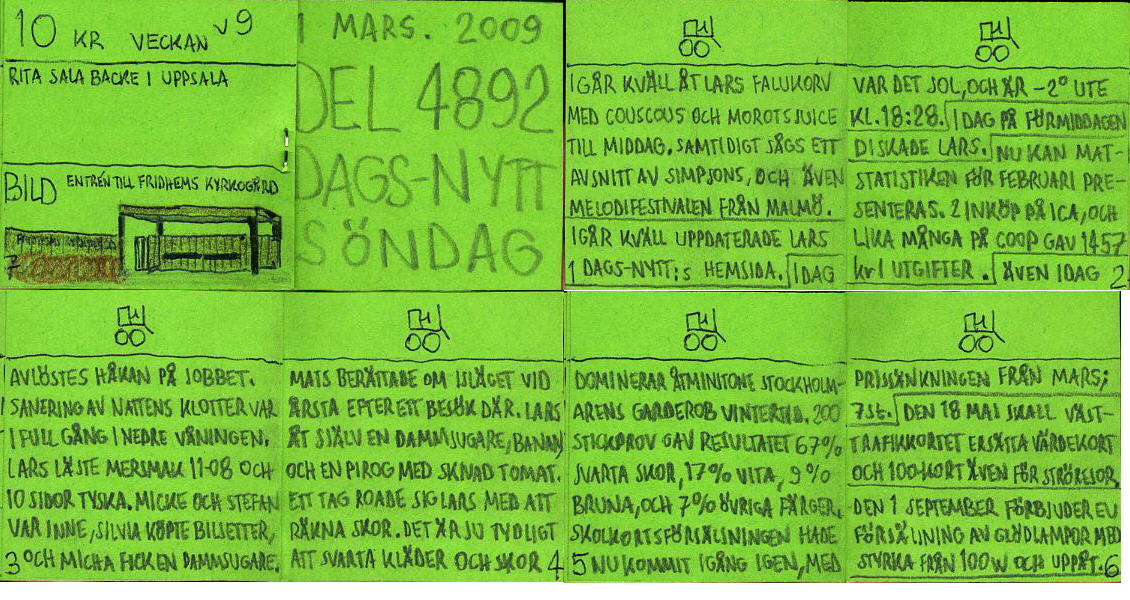 10 KR VECKAN v9
RITA SALA BACKE I UPPSALA
BILD ENTRÉN TILL FRIDHEMS KYRKOGÅRD
7
1 MARS. 2009
DEL 4892
DAGS-NYTT
SÖNDAG
IGÅR KVÄLL ÅT LARS FALUKORV
MED COUSCOUS OCH MOROTSJUICE
TILL MIDDAG. SAMTIDIGT SÅGS ETT
AVSNITT AV SIMPSONS, OCH ÄVEN
MELODIFESTIVALEN FRÅN MALMÖ.
IGÅR KVÄLL UPPDATERADE LARS
1 DAGS-NYTT:s HEMSIDA. IDAG
VAR DET SOL, OCH ÄR -2° UTE
KL. 18:28. IDAG PÅ FÖRMIDDAGEN
DISKADE LARS. NU KAN MAT-
STATISTIKEN FÖR FEBRUARI PRE-
SENTERAS. 2 INKÖP PÅ ICA, OCH
LIKA MÅNGA PÅ COOP GAV 1457
kr I UTGIFTER. ÄVEN IDAG 2
AVLÖSTES HÅKAN PÅ JOBBET.
SANERING AV NATTENS KLOTTER VAR
I FULL GÅNG I NEDRE VÅNINGEN.
LARS LÄSTE MERSMAK 11-08 OCH
10 SIDOR TYSKA. MICKE OCH STEFAN
VAR INNE, SILVIA KÖPTE BILJETTER,
3 OCH MICHA FICK EN DAMMSUGARE.
MATS BERÄTTADE OM ISLÄGET VID
ÅRSTA EFTER ETT BESÖK DÄR. LARS
ÅT SJÄLV EN DAMMSUGARE, BANAN
OCH EN PIROG MED SKIVAD TOMAT.
ETT TAG ROADE SIG LARS MED ATT
RÄKNA SKOR. DET ÄR JU TYDLIGT
ATT SVARTA KLÄDER OCH SKOR 4
DOMINERAR ÅTMINSTONE STOCKHOLM-
ARENS GARDEROB VINTERTID. 200
STICKPROV GAV RESULTATET 67%
SVARTA SKOR, 17% VITA, 9%
BRUNA, OCH 7% ÖVRIGA FÄRGER.
SKOLKORTSFÖRSÄLJNINGEN HADE
5 NU KOMMIT IGÅNG IGEN, MED
PRISSÄNKNINGEN FRÅN MARS;
7st. DEN 18 MAJ SKALL VÄST-
TRAFIKKORTET ERSÄTTA VÄRDEKORT
OCH 100-KORT ÄVEN FÖR STRÖRESOR.
DEN 1 SEPTEMBER FÖRBJUDER EU
FÖRSÄLJNING AV GLÖDLAMPOR MED
STYRKA FRÅN 100W OCH UPPÅT. 6